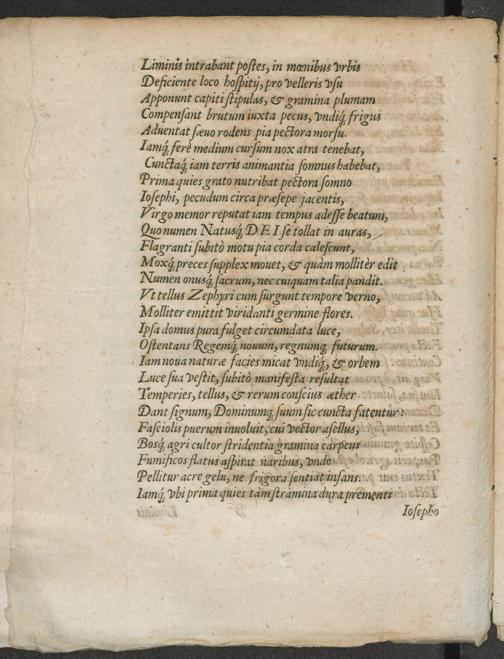 Liminis intrabant postes, in mœnibus vrbis
Deficiente loco hospitij, pro velleris vsu
Apponunt capiti stipulas, & gramina plumam
Compensant brutum iuxta pecus, vndiq́; frigus
Aduentat sæuo rodens pia pectora morsu.
Iamq́; ferè medium cursum nox atra tenebat,
Cunctaq́; iam terris animantia somnus habebat,
Prima quies grato nutribat pectora somno
Iosephi, pecudum circa præsepe jacentis,
Virgo memor reputat iam tempus adesse beatum,
Quo numen Natusq́; DEI se tollat in auras,
Flagranti subitò motu pia corda calescunt,
Moxq́; preces supplex mouet, & quàm mollitèr edit
Numen onusq́; sacrum, nec cuiquam talia pandit.
Vt tellus Zephyri cum surgunt tempore verno,
Molliter emittit viridanti germine flores.
Ipsa domus pura fulget circumdata luce,
Ostentans Regemq́; nouum, regnumq́; futurum.
Iam noua naturæ facies micat vndiq́;, & orbem
Luce sua vestit, subitò manifesta resultat
Temperies, tellus, & rerum conscius æther
Dant signum, Dominumq́; suum sic cuncta fatentur:
Fasciolis puerum inuoluit, cui vector asellus,
Bosq́; agri cultor stridentia gramina carpens
Fumificos flatus aspirat naribus, vnde
Pellitur acre gelu, ne frigora sentiat infans.
Iamq́; vbi prima quies tàm stramina dura prementi
Iosepho